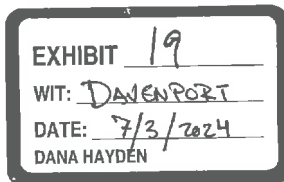 EXHIBIT 19
WIT: DAVENPORT
DATE: 7/3/2024
DANA HAYDEN